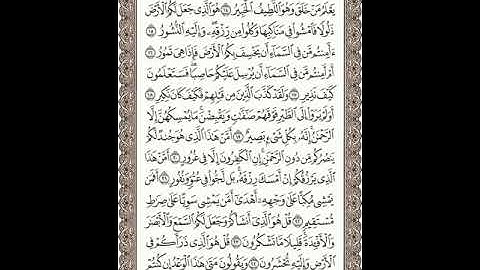 يَعْلَمُ مَنْ خَلَقَ وَهُوَ ٱللَّطِيفُ ٱلْخَبِيرُ ١٤ هُوَ ٱلَّذِى جَعَلَ لَكُمُ ٱلْأَرْضَ
ذَلُولًا فَٱمْشُوا۟ فِى مَنَاكِبِهَا وَكُلُوا۟ مِن رِّزْقِهِۦ ۖ وَإِلَيْهِ ٱلنُّشُورُ ١٥
ءَأَمِنتُم مَّن فِى ٱلسَّمَآءِ أَن يَخْسِفَ بِكُمُ ٱلْأَرْضَ فَإِذَا هِىَ تَمُورُ ١٦
أَمْ أَمِنتُم مَّن فِى ٱلسَّمَآءِ أَن يُرْسِلَ عَلَيْكُمْ حَاصِبًا ۖ فَسَتَعْلَمُونَ
كَيْفَ نَذِيرِ ١٧ وَلَقَدْ كَذَّبَ ٱلَّذِينَ مِن قَبْلِهِمْ فَكَيْفَ كَانَ نَكِيرِ ١٨
أَوَلَمْ يَرَوْا۟ إِلَى ٱلطَّيْرِ فَوْقَهُمْ صَٰٓفَّٰتٍ وَيَقْبِضْنَ ۚ مَا يُمْسِكُهُنَّ إِلَّا
ٱلرَّحْمَٰنُ ۚ إِنَّهُۥ بِكُلِّ شَىْءٍۭ بَصِيرٌ ١٩ أَمَّنْ هَٰذَا ٱلَّذِى هُوَ جُندٌ لَّكُمْ
يَنصُرُكُم مِّن دُونِ ٱلرَّحْمَٰنِ ۚ إِنِ ٱلْكَٰفِرُونَ إِلَّا فِى غُرُورٍ ٢٠ أَمَّنْ هَٰذَا
ٱلَّذِى يَرْزُقُكُمْ إِنْ أَمْسَكَ رِزْقَهُۥ ۚ بَل لَّجُّوا۟ فِى عُتُوٍّ وَنُفُورٍ ٢١ أَفَمَن
يَمْشِى مُكِبًّا عَلَىٰ وَجْهِهِۦٓ أَهْدَىٰٓ أَمَّن يَمْشِى سَوِيًّا عَلَىٰ صِرَٰطٍ
مُّسْتَقِيمٍ ٢٢ قُلْ هُوَ ٱلَّذِىٓ أَنشَأَكُمْ وَجَعَلَ لَكُمُ ٱلسَّمْعَ وَٱلْأَبْصَٰرَ
وَٱلْأَفْـِٔدَةَ ۖ قَلِيلًا مَّا تَشْكُرُونَ ٢٣ قُلْ هُوَ ٱلَّذِى ذَرَأَكُمْ فِى
ٱلْأَرْضِ وَإِلَيْهِ تُحْشَرُونَ ٢٤ وَيَقُولُونَ مَتَىٰ هَٰذَا ٱلْوَعْدُ إِن كُنتُمْ